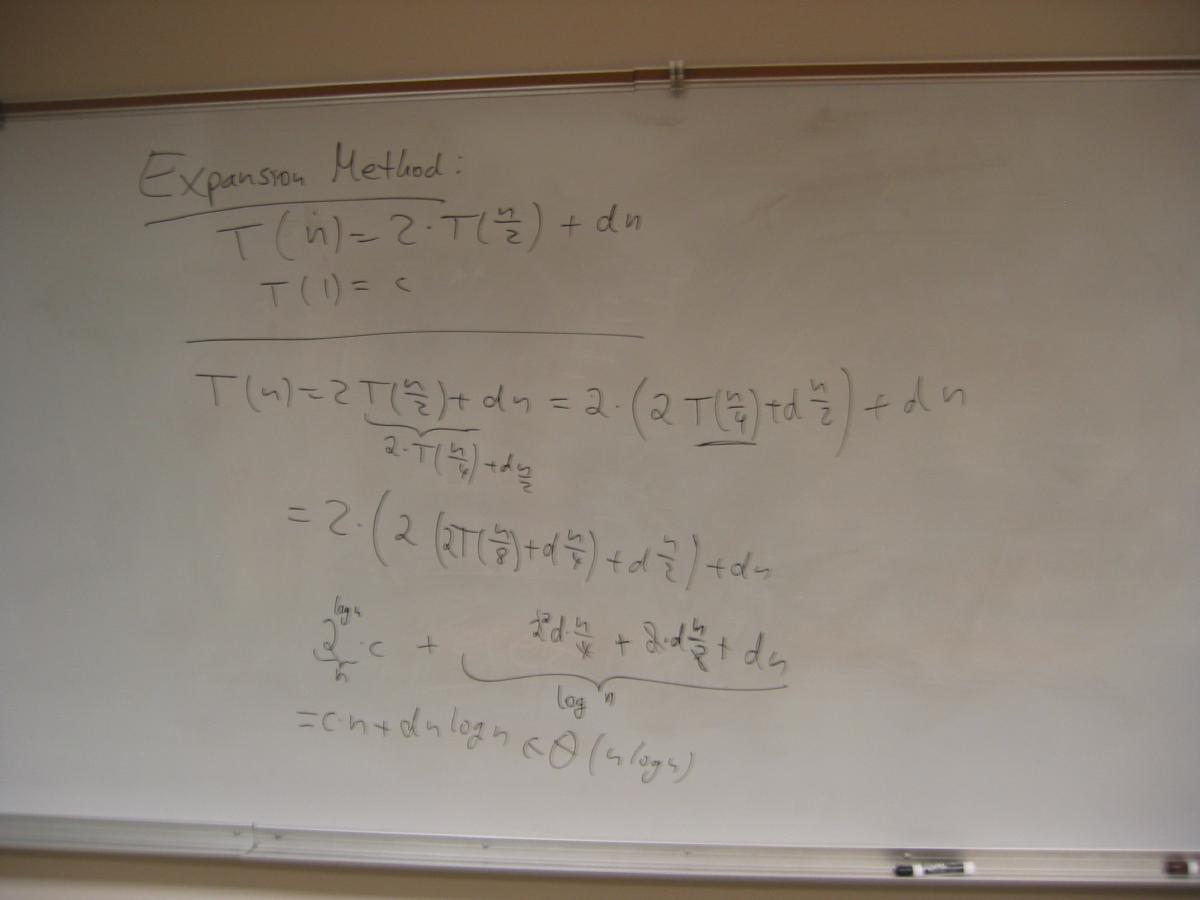 Expansion Method:
T(n) = 2·T(n/2) + dn
T(1) = c
T(n) = 2T(n/2) + dn = 2·(2T(n/4) + d n/2) + dn
2·T(n/4) + d n/2
= 2·(2(2T(n/8) + d n/4) + d n/2) + dn
2^log n · c + 2²d· n/4 + 2·d n/2 + dn
n
log n
= c·n + dn log n ∈ Θ(n log n)